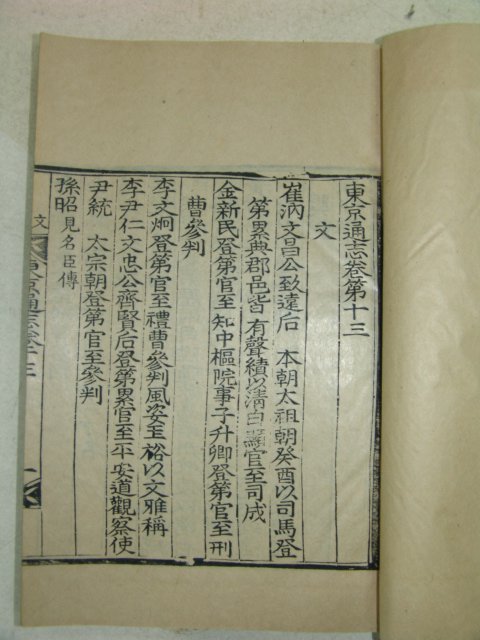 東京通志卷第十三
文
崔汭文昌公致遠后 本朝太祖朝癸酉以司馬登
第累典郡邑皆有聲績以清白 官至司成
金新民登第官至 知中樞院事子升卿登第官至刑
曹參判
李文炯登第官至禮曹參判風姿玉裕以文雅稱
李尹仁文忠公齊賢后登第累官至平安道觀察使
尹統 太宗朝登第官至參判
孫昭見名臣傳
文 東京通志卷十三 一